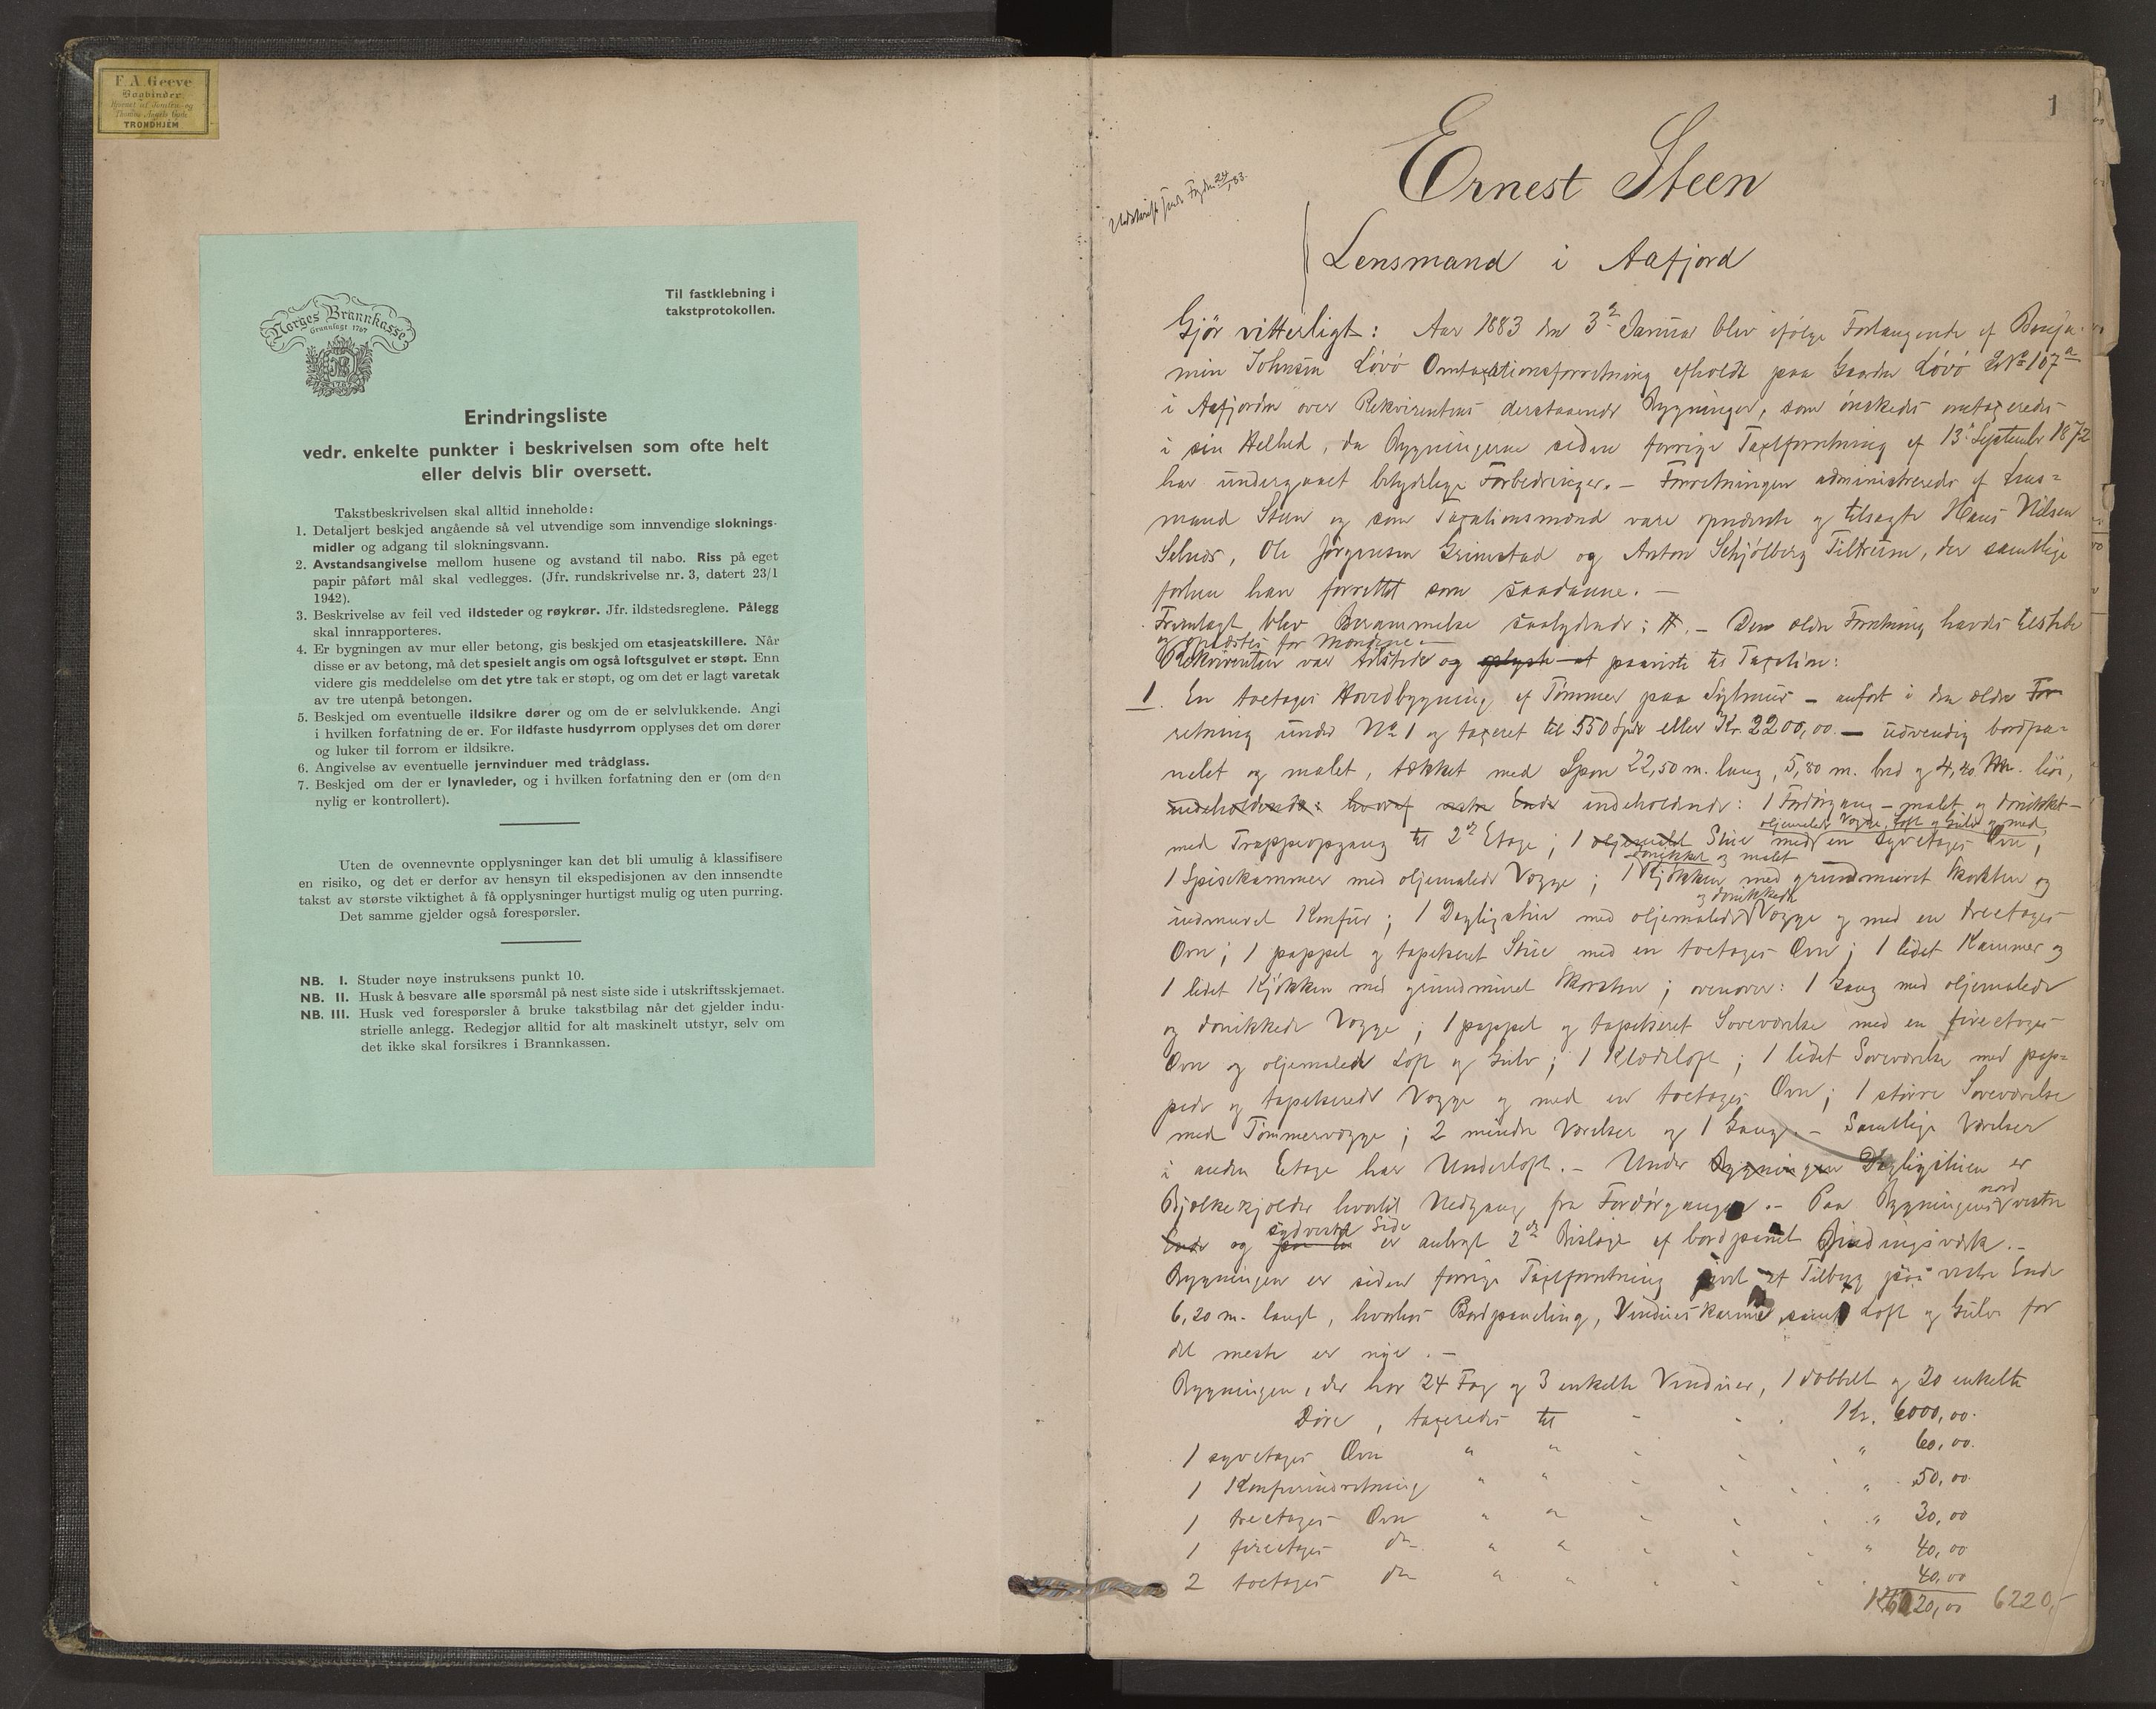 F. A. Geeve
Bogbinder.
Hjørnet af Søndre- og
Thomas Angels Gade
TRONDHJEM
Til fastklebning i
takstprotokollen.
Norges Brannkasse
Grunnlagt 1767
Erindringsliste
vedr. enkelte punkter i beskrivelsen som ofte helt
eller delvis blir oversett.
Takstbeskrivelsen skal alltid inneholde:
1. Detaljert beskjed angående så vel utvendige som innvendige sloknings-
midler og adgang til slokningsvann.
2. Avstandsangivelse mellom husene og avstand til nabo. Riss på eget
papir påført mål skal vedlegges. (Jfr. rundskrivelse nr. 3, datert 23/1
1942).
3. Beskrivelse av feil ved ildsteder og røykrør. Jfr. ildstedsreglene. Pålegg
skal innrapporteres.
4. Er bygningen av mur eller betong, gis beskjed om etasjeatskillere. Når
disse er av betong, må det spesielt angis om også loftsgulvet er støpt. Enn
videre gis meddelelse om det ytre tak er støpt, og om det er lagt varetak
av tre utenpå betongen.
5. Beskjed om eventuelle ildsikre dører og om de er selvlukkende. Angi
i hvilken forfatning de er. For ildfaste husdyrrom opplyses det om dører
og luker til forrom er ildsikre.
6. Angivelse av eventuelle jernvinduer med trådglass.
7. Beskjed om der er lynavleder, og i hvilken forfatning den er (om den
nylig er kontrollert).
Uten de ovennevnte opplysninger kan det bli umulig å klassifisere
en risiko, og det er derfor av hensyn til ekspedisjonen av den innsendte
takst av største viktighet å få opplysninger hurtigst mulig og uten purring.
Det samme gjelder også forespørsler.
NB. I. Studer nøye instruksens punkt 10.
NB. II. Husk å besvare alle spørsmål på nest siste side i utskriftsskjemaet.
NB. III. Husk ved forespørsler å bruke takstbilag når det gjelder indu-
strielle anlegg. Redegjør alltid for alt maskinelt utstyr, selv om
det ikke skal forsikres i Brannkassen.
1
Ernest Steen
Lensmand i Aafjord
Gjör vitterligt: Aar 1883 den 3die Januar blev ifölge Forlangende af Benja-
min Johnsen Lövö Omtaxationsforretning afholdt paa Gaarden Lövö LNo 107a
i Aafjorden over Rekvirentens derstaaende Bygninger, som önskedes omtaxerede
i sin Helhed, da Bygningerne siden forrige Taxtforretning af 13de September 1872
har undergaaet betydelige Forbedringer. - Forretningen administreredes af Lens-
mand Steen og som Taxationsmænd vare opnævnte og tilsagte Hans Nilsen
Selnes, Ole Jörgensen Grimstad og Anton Schjölberg Tiltrem, der samtlige
forhen har forrettet som saadanne. -
Fremlagt blev Berammelse saalydende: #. - Den ældre Forretning havdes tilstede
og oplæstes for Mændene. -
Rekvirenten var tilstede og oplyste at paaviste til Taxation:
1. En toetages Hovedbygning af Tömmer paa Sylmur - anfört i den ældre For
retning under No 1 og taxeret til 550 Spdr eller Kr. 2200,00 - udvendig bordpa-
nelet og malet, tækket med Spon 22,50 m. lang, 5,80 m. bred og 4,40 m. höi,
indeholdende: hvoraf indeholdende: 1 Fordörgang - malet og donikket -
oljemalede Vægge, Loft og Gulv og med
med Trappeopgang til 2den Etage; 1 oljemalet Stue med en syvetages Ovn;
donikket og malet
1 Spisekammer med oljemalede Vægge; 1 Kjökken med grundmuret Skorsten og
og donikkede
indmuret Komfur; 1 Dagligstue med oljemalede Vægge og med en treetages
Ovn; 1 pappet og tapetseret Stue med en toetages Ovn; 1 lidet Kammer og
1 lidet Kjökken med grundmuret Skorsten; ovenover: 1 Gang med oljemalede
og donikkede Vægge; 1 pappet og tapetseret Soveværelse med en fireetages
Ovn og oljemalet Loft og Gulv; 1 Klædeloft; 1 lidet Soveværelse med pap-
pede og tapetserede Vægge og med en toetages Ovn; 1 större Soveværelse
med Tömmervægge; 2 mindre Værelser og 1 Gang. - Samtlige Værelser
i anden Etage har Underloft. - Under Bygningen Dagligstuen er
Bjelkekjelder hvortil Nedgang fra Fordörgangen. - Paa Bygningens
nord
vestre
sydvestre Side
Ende og paa er anbragt 2de Bislage af bordpanelt Bindingsværk. -
Bygningen er siden forrige Taxtforretning givet et Tilbygg paa vestre Ende
6,20 m. langt, hvorhos Bordpaneling, Vindueskarme samt Loft og Gulve for
det meste er nye. -
Bygningen, der har 24 Fag og 3 enkelte Vinduer, 1 dobbelt og 20 enkelte
Döre, taxeredes til - - - Kr. 6000,00.
1 syvetages Ovn " " - - - " 60,00.
1 Komfurindretning " " - - - " 50,00
1 treetages Ovn " " - - - " 30,00
1 fireetages do " " - - - " 40,00
2 toetages do " " - - - 40,00
20,00 6220,-